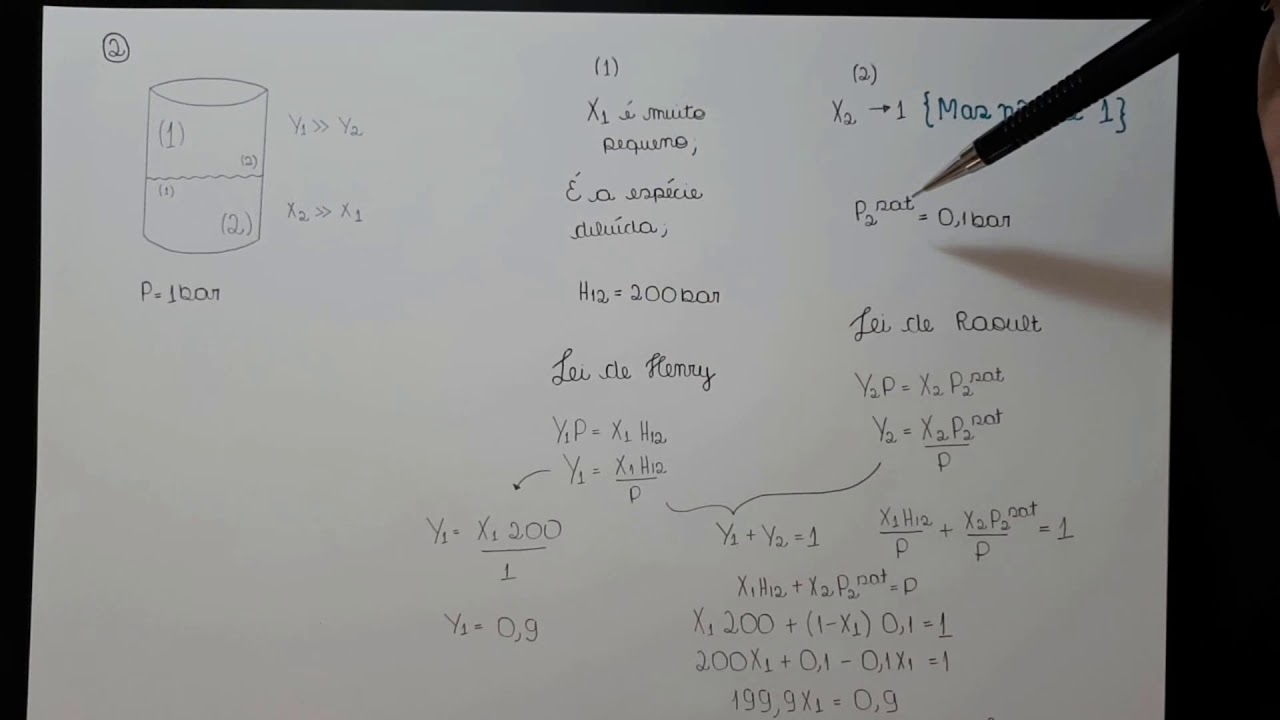 2
(1)
(2)
(1)
(2)
Y₁ >> Y₂
X₂ >> X₁
P = 1 bar
(1)
X₁ é muito
pequeno;
É a espécie
diluída;
H₁₂ = 200 bar
Lei de Henry
Y₁P = X₁ H₁₂
Y₁ = X₁ H₁₂ / P
Y₁ = X₁ 200 / 1
Y₁ = 0,9
(2)
X₂ → 1 {Mas 1}
P₂ˢᵃᵗ = 0,1 bar
Lei de Raoult
Y₂P = X₂ P₂ˢᵃᵗ
Y₂ = X₂ P₂ˢᵃᵗ / P
Y₁ + Y₂ = 1
X₁H₁₂ / P + X₂P₂ˢᵃᵗ / P = 1
X₁H₁₂ + X₂P₂ˢᵃᵗ = P
X₁ 200 + (1-X₁) 0,1 = 1
200X₁ + 0,1 - 0,1X₁ = 1
199,9X₁ = 0,9